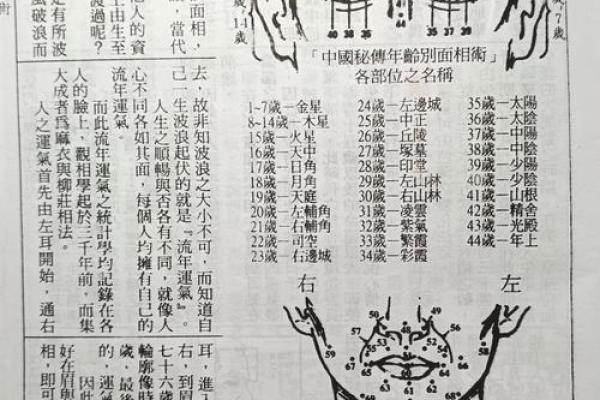 面相,
,當代
人的資
由生至
渡過呢?
有所波
風破浪而
術
14歲
40 38
35 37 39
44
7歲
「中國秘傳年齡別面相術」
各部位之名稱
1~7歲—金星
8~14歲—木星
15歲—火星
16歲—天中
17歲—日角
18歲—月角
19歲—天庭
20歲—左輔角
21歲—右輔角
22歲—司空
23歲—右邊城
24歲—左邊城
25歲—中正
26歲—丘陵
27歲—塚墓
28歲—印堂
29歲—左山林
30歲—右山林
31歲—凌雲
32歲—紫氣
33歲—繁霞
34歲—彩霞
35歲—太陽
36歲—太陰
37歲—中陽
38歲—中陰
39歲—少陽
40歲—少陰
41歲—山根
42歲—精舍
43歲—光殿
44歲—年上
去,故非知波浪之大小不可,而知道自
己一生波浪起伏的就是『流年運氣』。
人生之順暢與否各有不同,就像人
心不同各如其面,每個人均擁有自己的
流年運氣。
而此流年運氣之統計學均記錄在各
人的臉上,觀相學起於三千年前,而集
大成者為麻衣與柳莊相法。
人之運氣首先由左耳開始,通右
右 左
50 49
57 48 56
55 53 52 54
59 58
67 51 66
60
69 62 61 68
耳,進入
右,到眉
七十六歲
輪廓像時
歲,最後
的,運氣
因此
好在眉與
相,即可